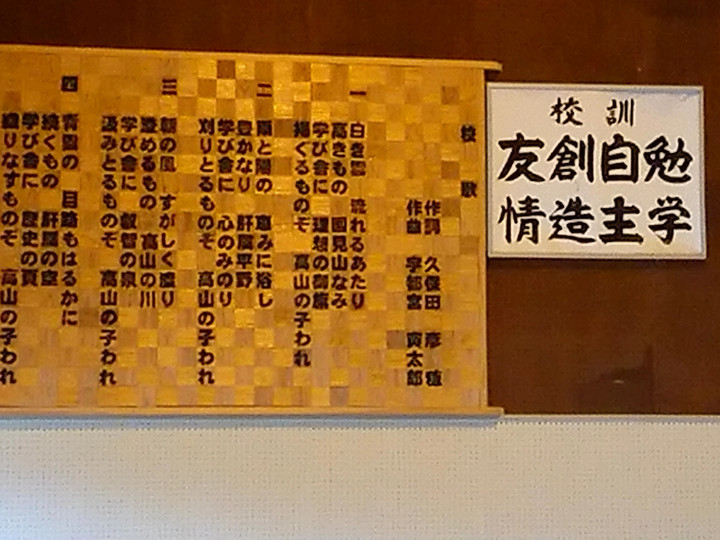 校訓
勉学
自主
創造
友情
校歌
作詞 久保田 彦穂
作曲 宇都宮 寅太郎
一 白き雲 流れるあたり
高きもの 国見山なみ
学び舎に 理想の御旗
掲ぐるものぞ 高山の子われ
二 雨と陽の 恵みに浴し
豊かなり 肝属平野
学び舎に 心のみのり
刈りとるものぞ 高山の子われ
三 朝の風 すがしく渡り
澄めるもの 高山の川
学び舎に 叡智の泉
汲みとるものぞ 高山の子われ
四 青雲の 目路もはるかに
続くもの 肝属の空
学び舎に 歴史の頁
織りなすものぞ 高山の子われ